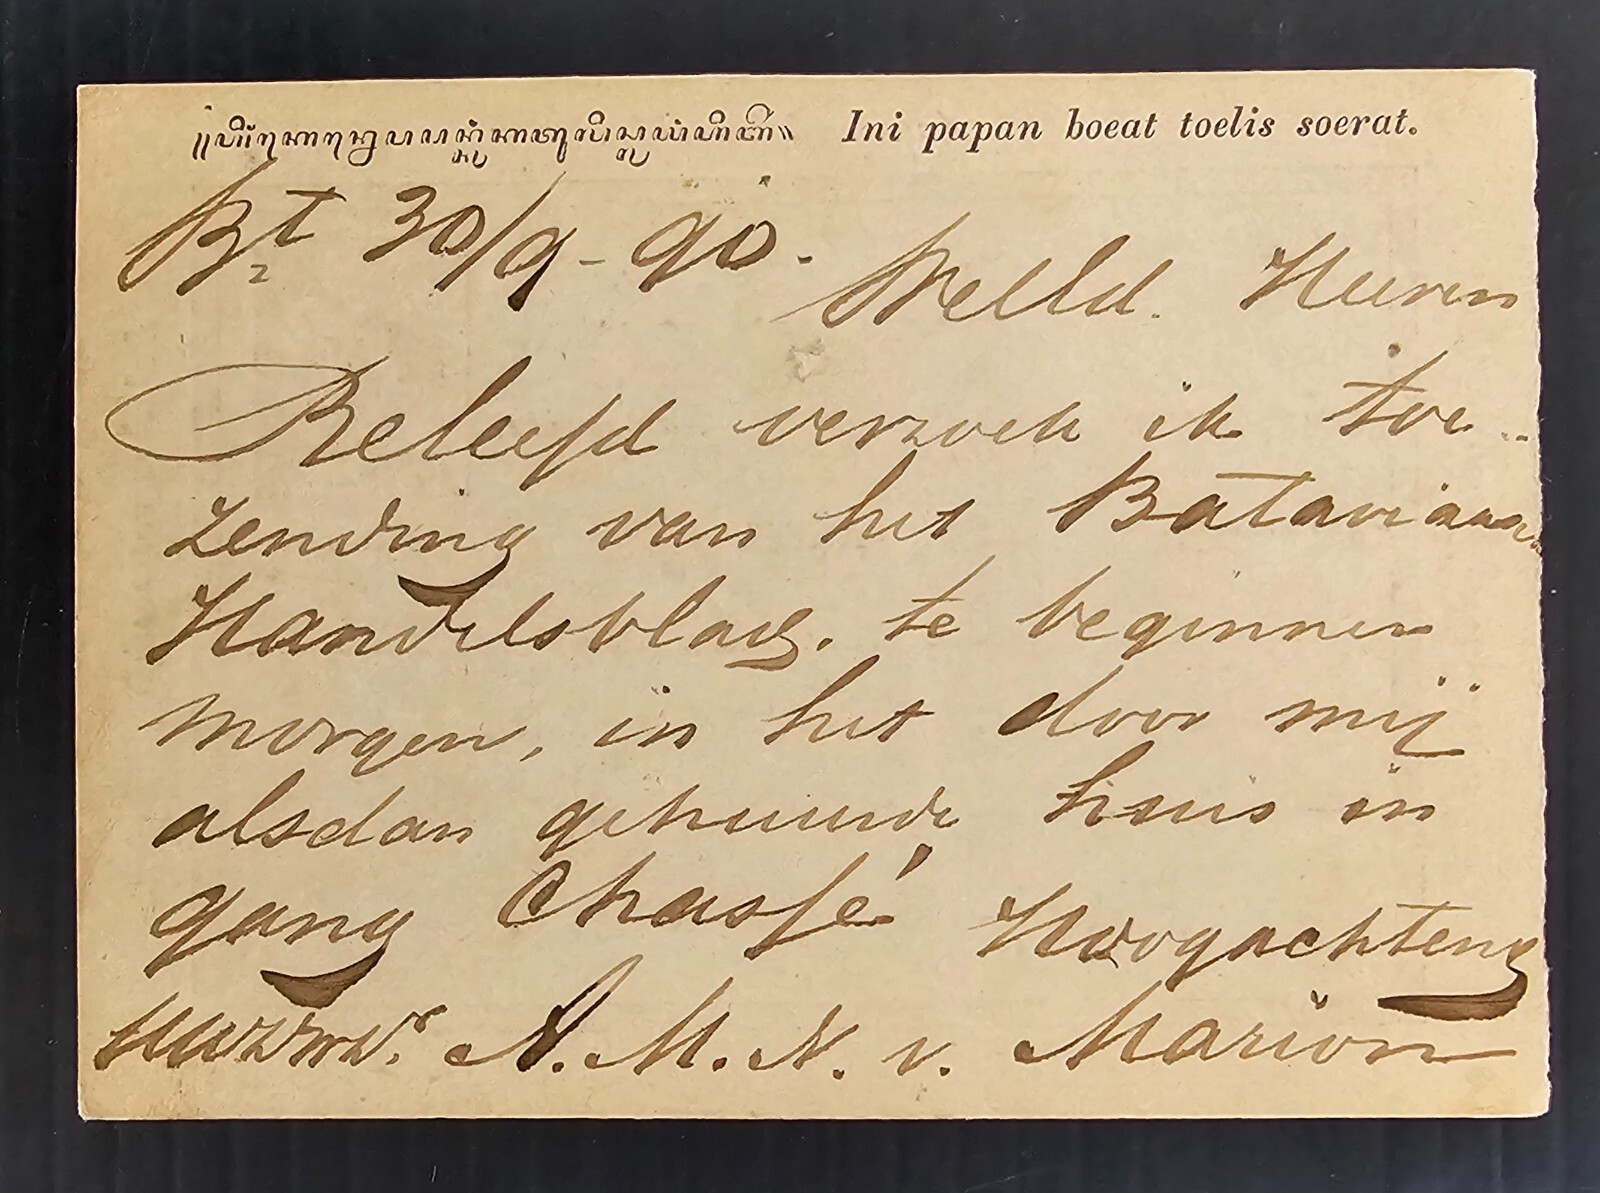 Ini papan boeat toelis soerat.
Bt 30/9 - 90.
Weled. Heeren
Beleefd verzoek ik toe-
zending van het Bataviaasch
Handelsblad, te beginnen
morgen, in het door mij
alsdan gehuurde huis in
gang Chassé Hoogachtend
A. M. N. v. Marion